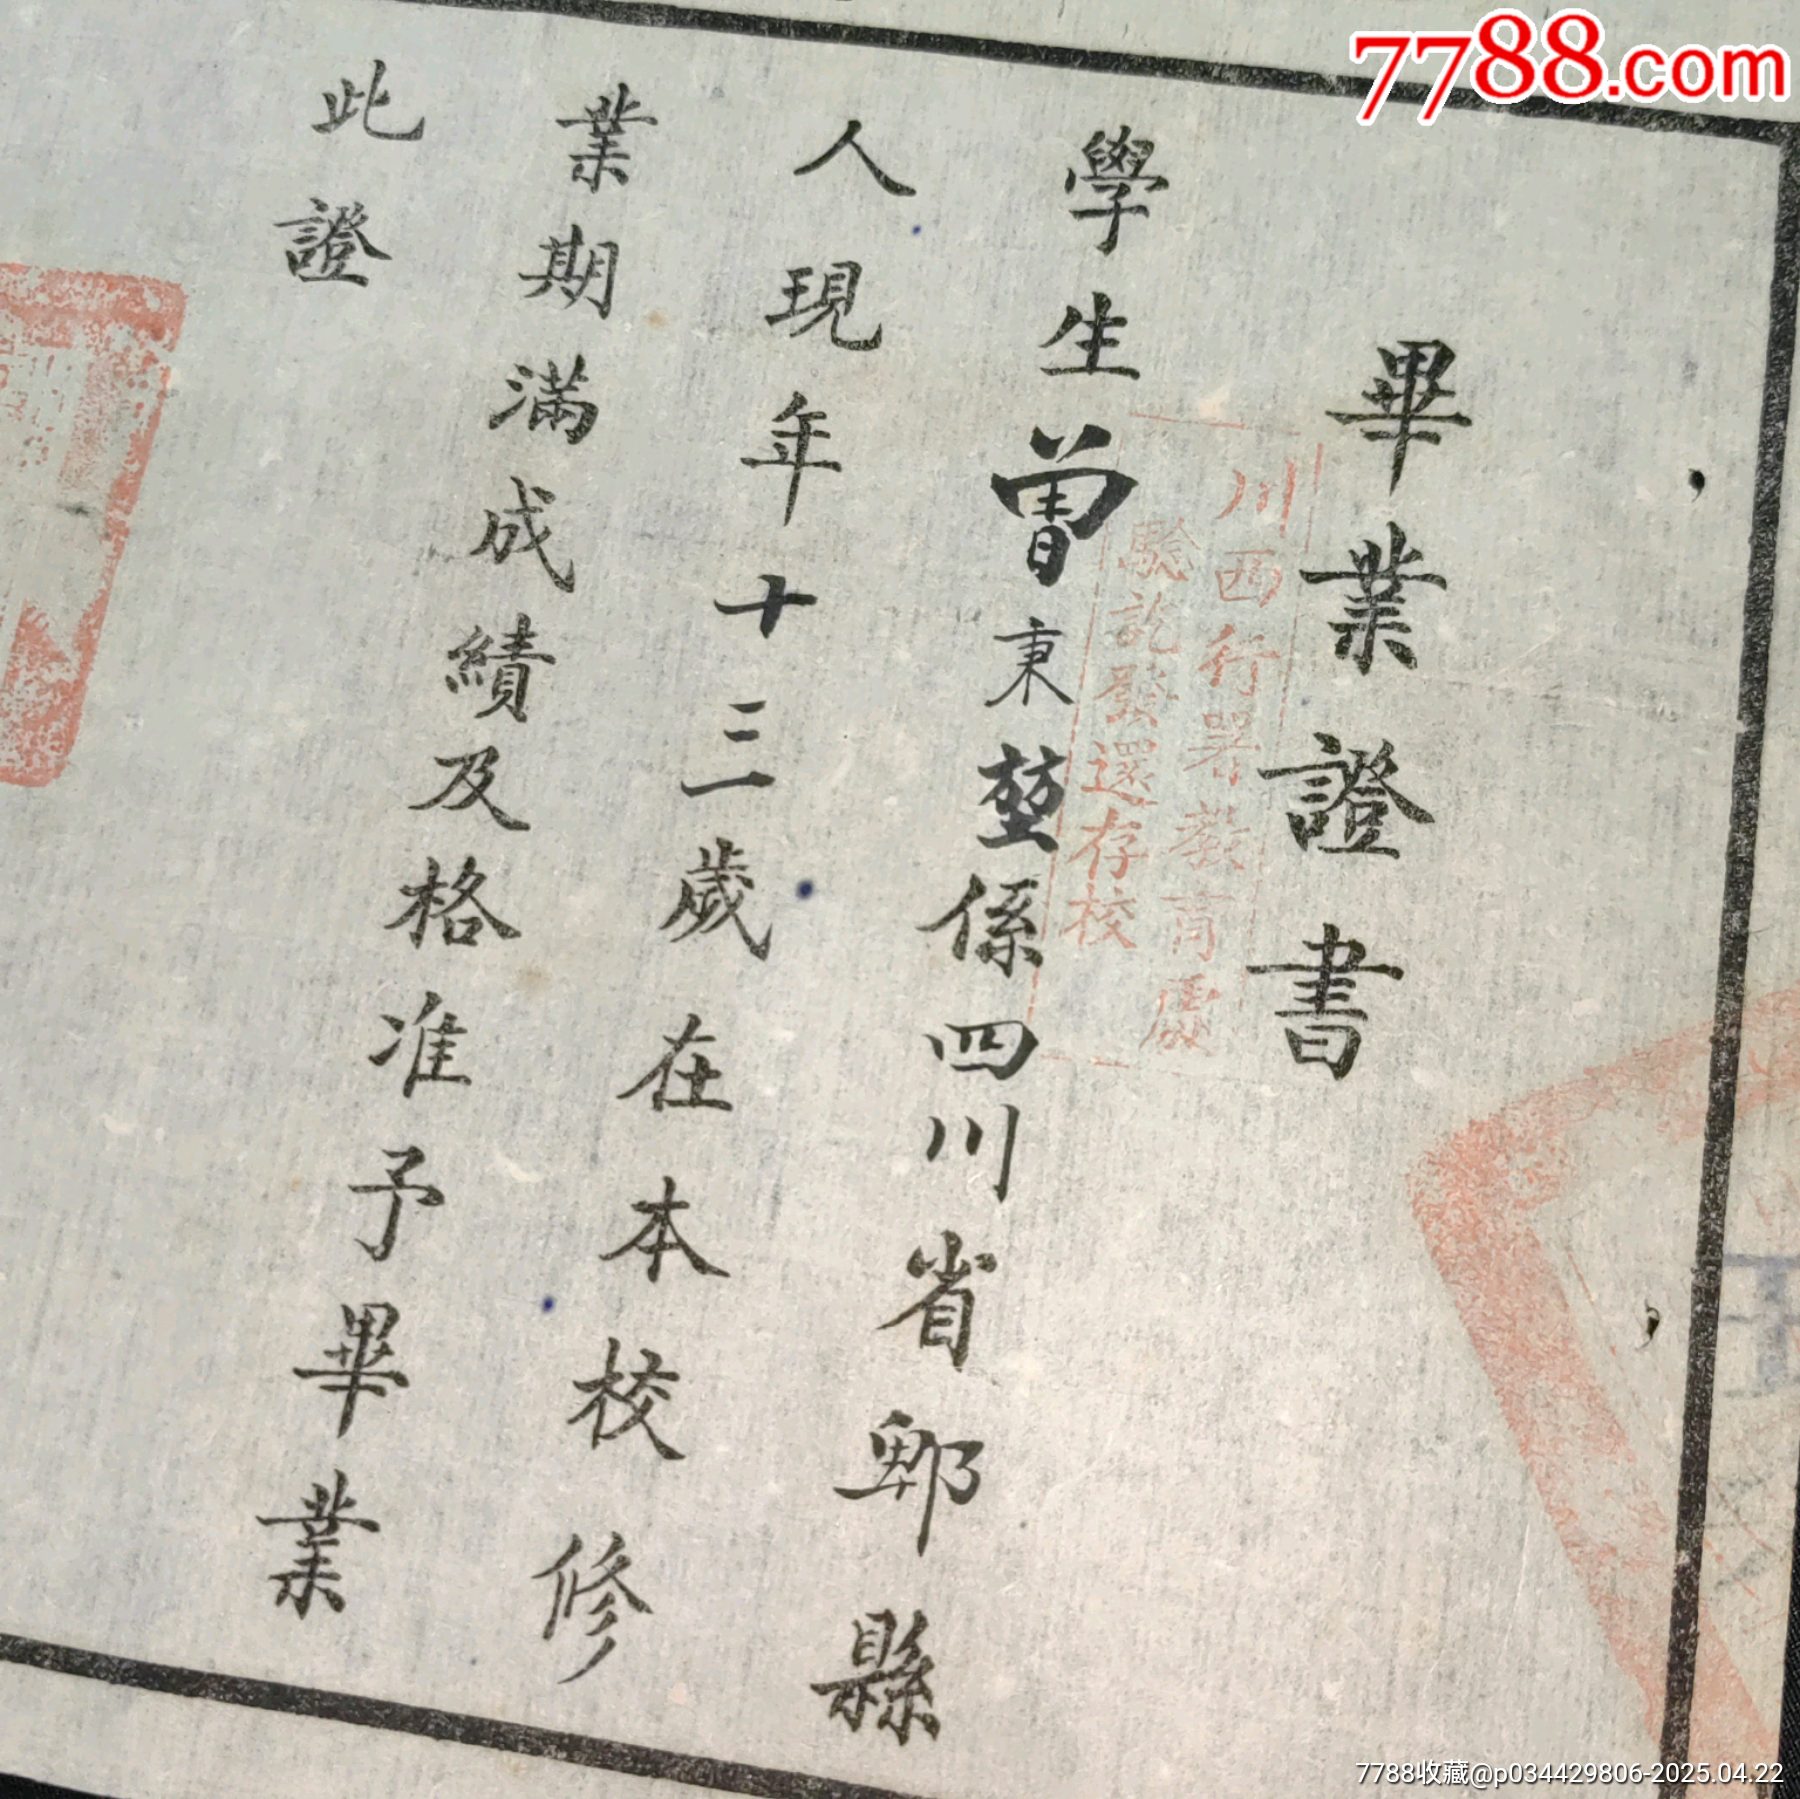 7788.com
畢業證書
川西行署教育處
驗訖發還存校
學生曾秉堃係四川省郫縣
人現年十三歲在本校修
業期滿成績及格准予畢業
此證
7788收藏@p034429806-2025.04.22